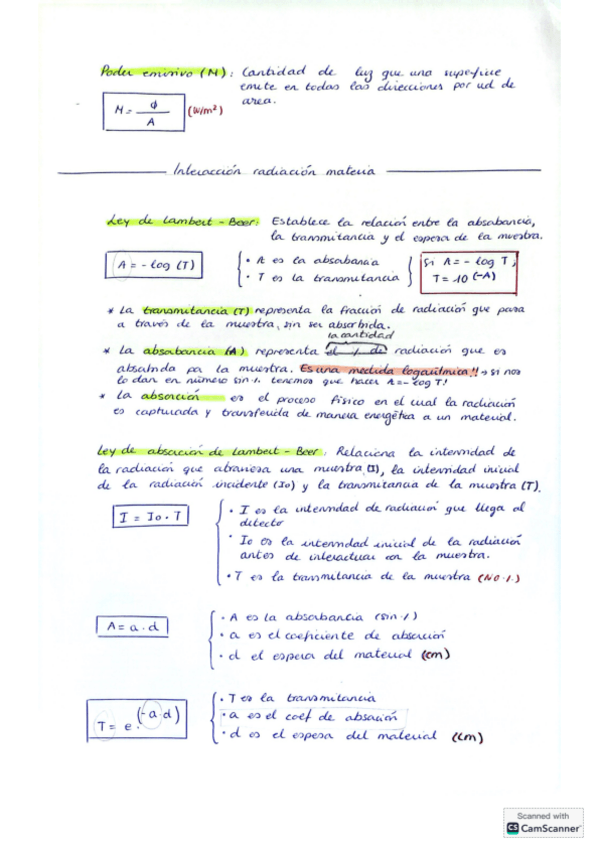 Poder emisivo (M): Cantidad de luz que una superficie
emite en todas las direcciones por ud de
area.
M = ϕ / A (W/m²)
Interacción radiación materia
Ley de Lambert - Beer: Establece la relación entre la absorbancia,
la transmitancia y el espesor de la muestra.
A = - log (T)
• A es la absorbancia
• T es la transmitancia
Si A = - log T;
T = 10 (-A)
* La transmitancia (T) representa la fracción de radiación que pasa
a través de la muestra, sin ser absorbida.
la cantidad
* La absorbancia (A) representa el % de radiación que es
absorbida por la muestra. Es una medida logarítmica!! → si nos
lo dan en número sin %. tenemos que hacer A = - log T!
* La absorción es el proceso físico en el cual la radiación
es capturada y transferida de manera energética a un material.
Ley de absorción de Lambert - Beer: Relaciona la intensidad de
la radiación que atraviesa una muestra (I), la intensidad inicial
de la radiación incidente (Io) y la transmitancia de la muestra (T).
I = Io · T
• I es la intensidad de radiación que llega al
detector
• Io es la intensidad inicial de la radiación
antes de interactuar con la muestra.
• T es la transmitancia de la muestra (NO %)
A = a · d
• A es la absorbancia (sin %)
• a es el coeficiente de absorción
• d el espesor del material (cm)
T = e · (-a·d)
• T es la transmitancia
• a es el coef de absorción
• d es el espesor del material (cm)
Scanned with
CS CamScanner